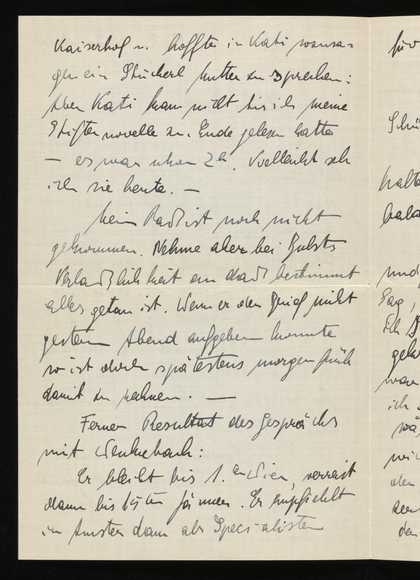 Kaiserhof u. hoffte in Kati
ein Stückerl Mutter zu sprechen:
Aber Kati kam nicht bis ich meine
Stifternovelle zu Ende gelesen hatte
– es war schon 2h. Vielleicht seh
ich sie heute. –
Mein Radl ist noch nicht
gekommen. Nehme aber bei Gusts
Verlaßlichkeit an daß bestimmt
alles getan ist. Wenn er den Brief nicht
gestern Abend aufgeben konnte
so ist doch spätestens morgen früh
damit zu rechnen. –
Ferner Resultat des Gesprächs
mit Wenkebach:
Er bleibt bis 1. in Wien, verreist
dann bis 15ten Jänner. Er empfiehlt
in Amsterdam als Specialisten
für
Schü
halte
bala
und
Sag
Ich
geh
war
ich